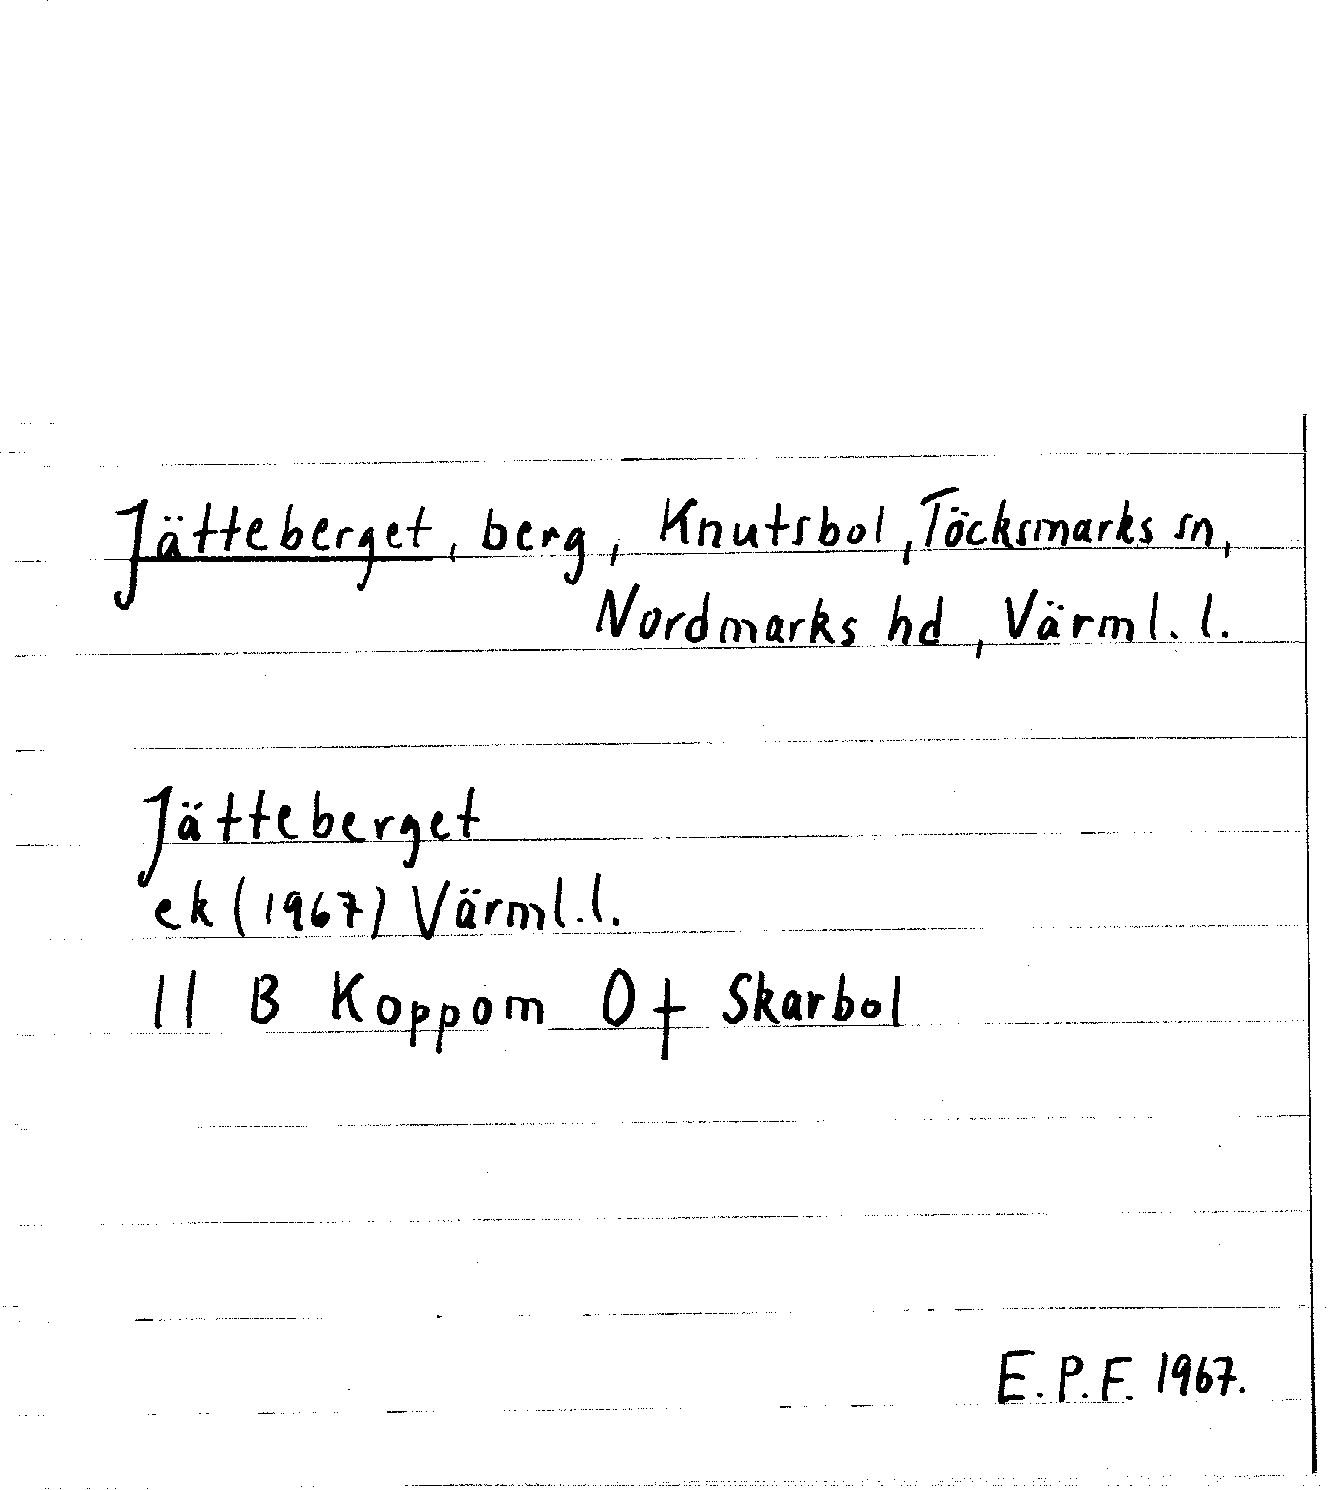 Jätteberget, berg, Knutsbol, Töcksmarks sn,
Nordmarks hd, Värml. l.
Jätteberget
ek (1967) Värml. l.
11 B Koppom 0 f Skarbol
E. P. F. 1967.